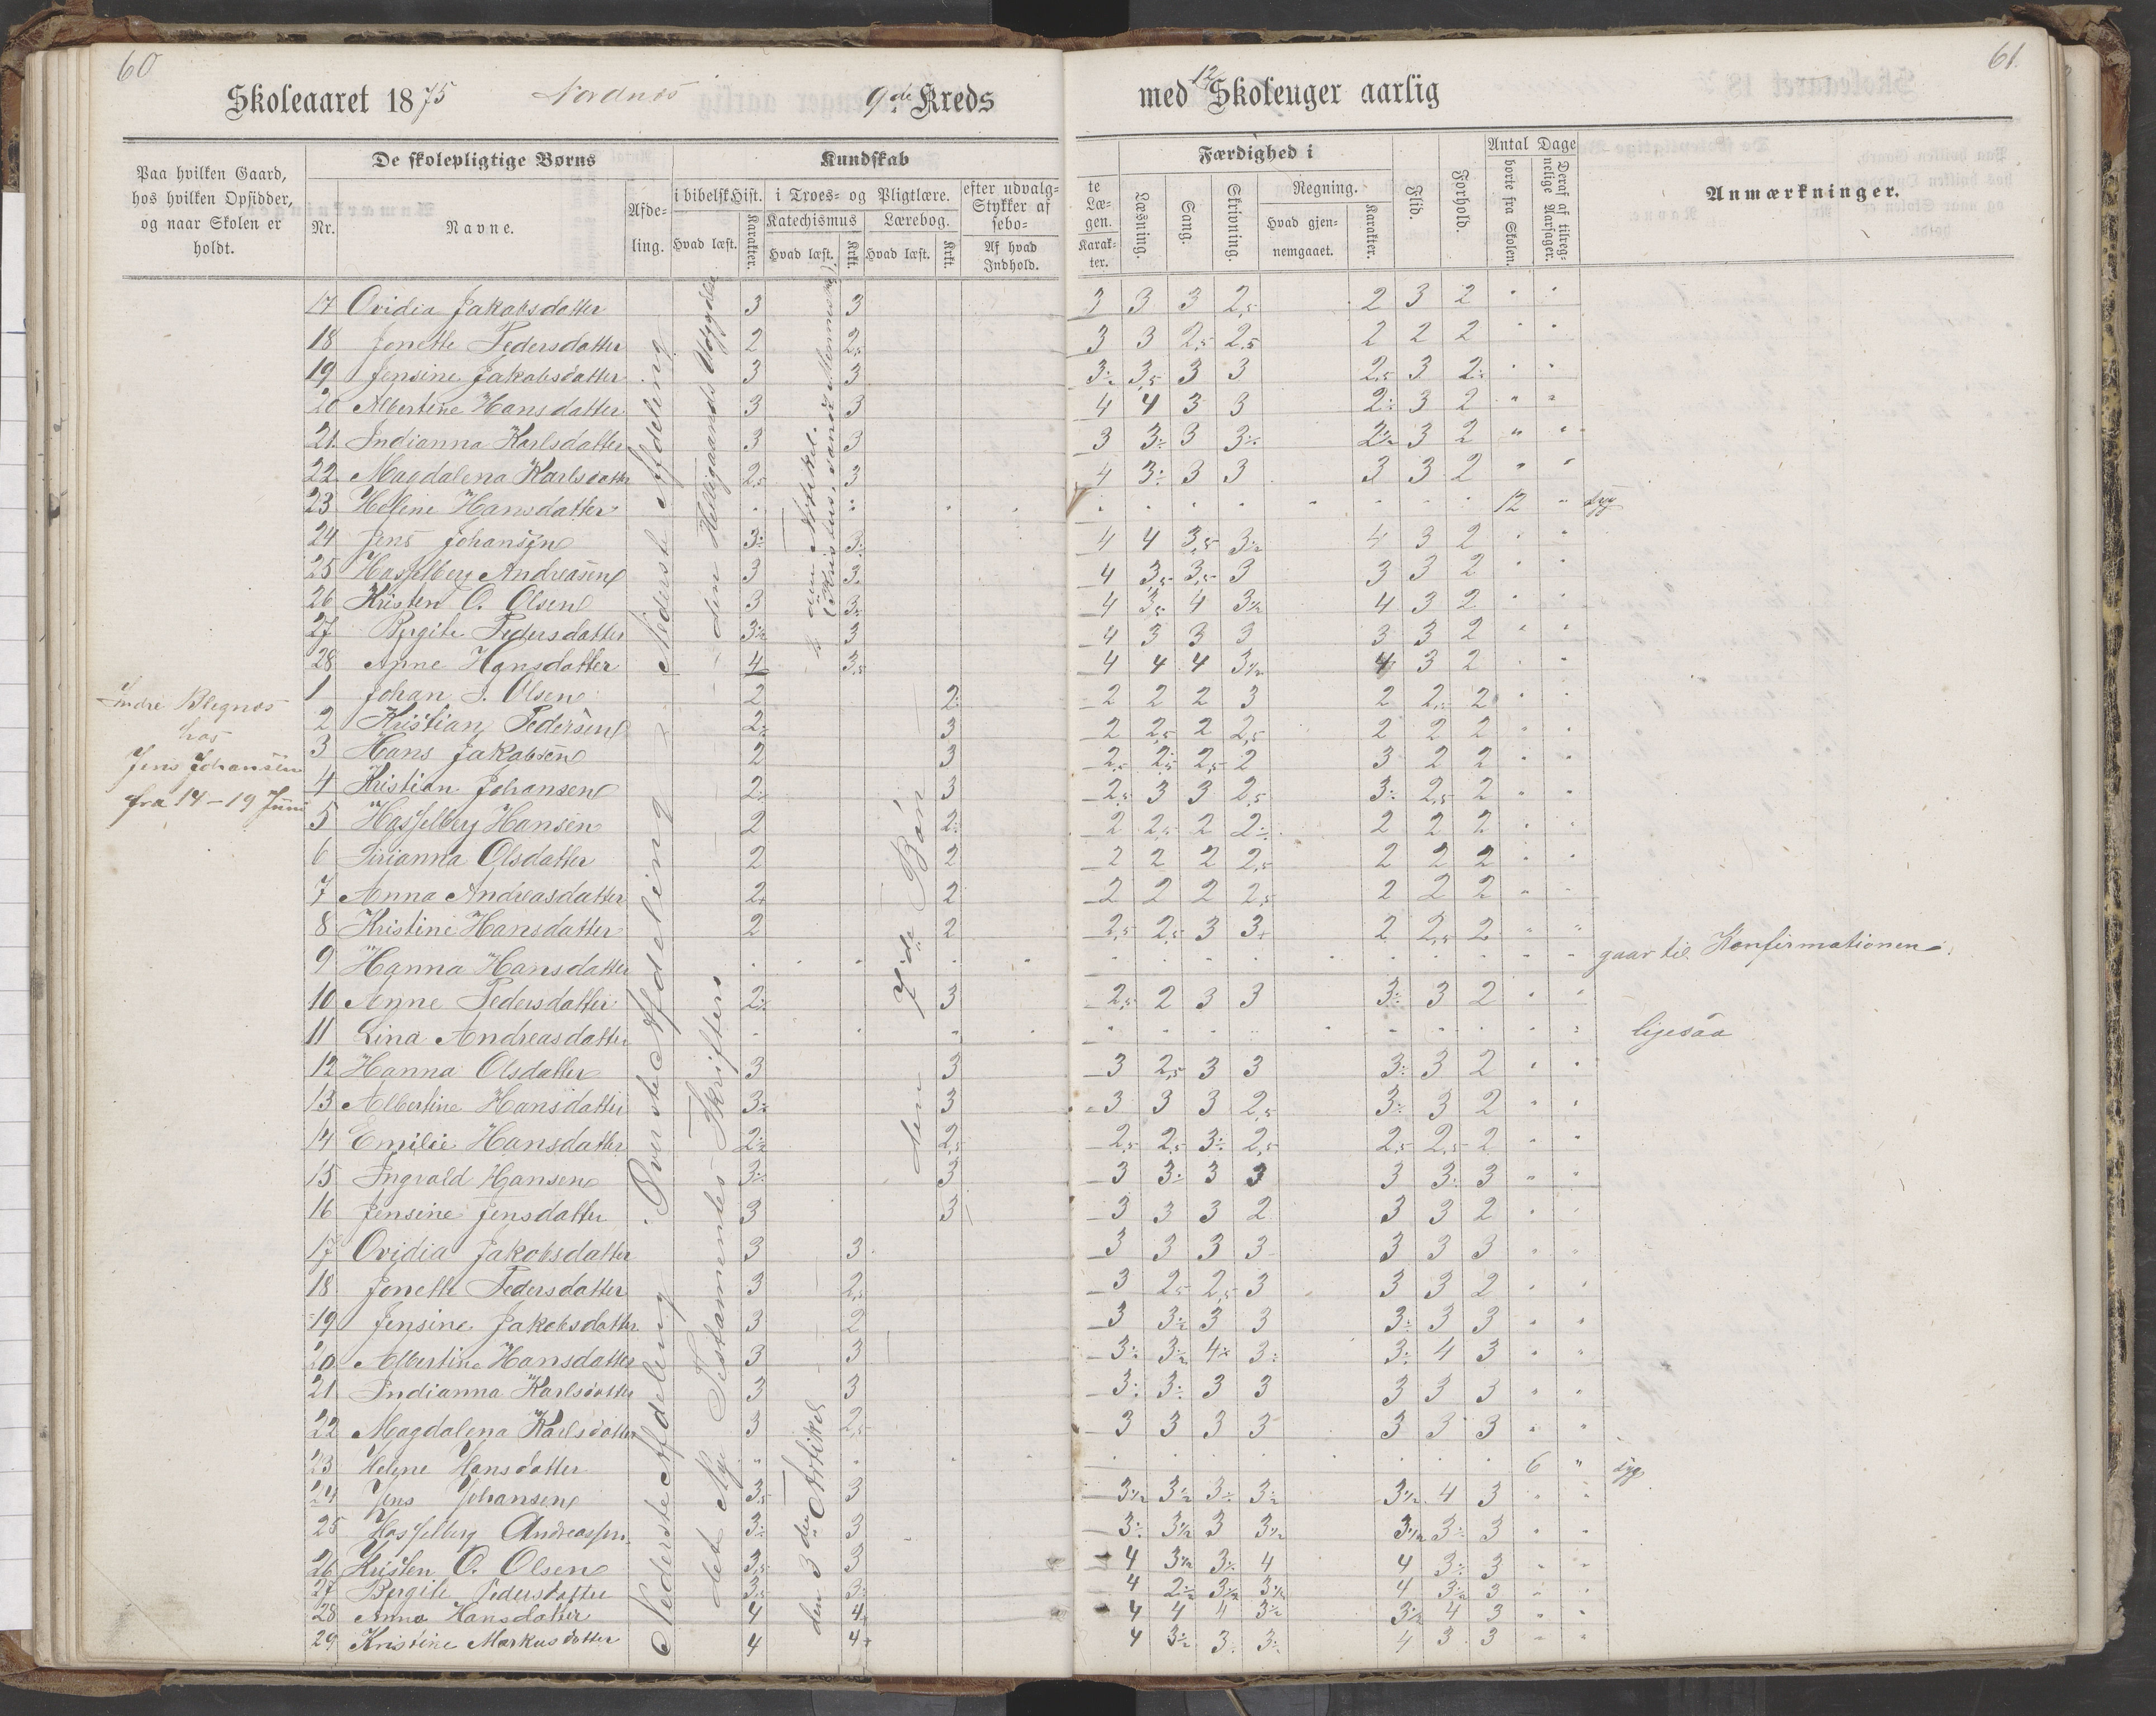 60
61.
Skoleaaret 1875 Nordnes 9de Kreds med 12 Skoleuger aarlig
Paa hvilken Gaard, hos hvilken Opsidder, og naar Skolen er holdt.
De skolepligtige Børns
Nr.
Navne.
Afde-
ling.
Kundskab
i bibelsk Hist.
Hvad læst.
Karakter.
i Troes- og Pligtlære.
Katechismus
Hvad læst.
Krkt.
Lærebog.
Hvad læst.
Krkt.
efter udvalg-
Stykker af
sebo-
Af hvad
Indhold.
te
Læ-
gen.
Karak-
ter.
Færdighed i
Læsning.
Sang.
Skrivning.
Regning.
Hvad gjen-
nemgaaet.
Karakter.
Flid.
Forhold.
Antal Dage
borte fra Skolen.
Deraf af tilreg-
nelige Aarsager.
Anmærkninger.
17 Ovidia Jakobsdatter 3 3 3 3 3 2,5 2 3 2
18 Jonette Pedersdatter 2 2,5 3 3 2,5 2,5 2 2 2
19 Jensine Jakobsdatter 3 3 3 1/2 3,5 3 3 2,5 3 2
20 Albertine Hansdatter 3 3 4 4 3 3 2 3 2
21. Indianna Karlsdatter 3 3 3 3 3 3 2 1/2 3 2
22. Magdalena Karlsdatter 2,5 3 4 3 3 3 3 3 2
23 Helene Hansdatter 12 " syg
24 Jens Johansen 3 3 4 4 3,5 3 1/2 4 3 2
25 Hasselberg Andreasen 3 3 4 3,5 3,5 3 3 3 2
26 Kristen O. Olsen 3 3 4 3,5 4 3 1/2 4 3 2
27 Bergite Pedersdatter 3 1/2 3 4 3 3 3 3 3 2
28 Anne Hansdatter 4 3,5 4 4 4 3 1/2 4 3 2
Nederste Afdeling
den Helligaands Udgydelse
Artikel.
Indre
hos
Jens Johansen
fra 14-19 Juni
1 Johan J. Olsen 2 2 2 2 2 3 2 2 2
2 Kristian Pedersen 2 3 2 2,5 2 2,5 2 2 2
3 Hans Jakobsen 2 3 2 2 2,5 2 3 2 2
4 Kristian Johansen 2 3 2,5 3 3 2,5 3 2,5 2
5 Hasselberg Hansen 2 2 2 2,5 2 2 2 2 2
6 Sirianna Olsdatter 2 2 2 2 2 2,5 2 2 2
7 Anna Andreasdatter 2 2 2 2 2 2,5 2 2 2
8 Kristine Hansdatter 2 2 2,5 2,5 3 3 2 2,5 2
9 Hanna Hansdatter gaar til Konfirmationen
10 Anne Pedersdatter 2 3 2,5 2 3 3 3 3 2
11 Lina Andreasdatter ligesaa
12 Hanna Olsdatter 3 3 3 2,5 3 3 3 3 2
13 Albertine Hansdatter 3 3 3 3 3 2,5 3 3 2
14 Emilie Hansdatter 2 1/2 2,5 2,5 2,5 3 2,5 2,5 2,5 2
15 Ingvald Hansen 3 3 3 3 3 3 3 3 3
16 Jensine Jensdatter 3 3 3 3 3 2 3 3 2
Øverste Afdeling
det Nye Testamentes Skrifter
den 7de Bøn
17 Ovidia Jakobsdatter 3 3 3 3 3 3 3 3 3
18 Jonette Pedersdatter 3 2,5 3 2,5 2,5 3 3 3 2
19 Jensine Jakobsdatter 3 2 3 3 1/2 3 3 3 3 3
20 Albertine Hansdatter 3 3 3 3 1/2 4 3 3 4 3
21 Indianna Karlsdatter 3 3 3 3 3 3 3 3 3
22 Magdalena Karlsdatter 3 2,5 3 3 3 3 3 3 3
23 Helene Hansdatter 6 " syg
24 Jens Johansen 3,5 3 3 1/2 3 1/2 3 3 1/2 3 1/2 4 3
25 Hasselberg Andreassen 3 3 3 3 1/2 3 3 1/2 3 1/2 3 3
26 Kristen O. Olsen 3,5 3 4 3 1/2 3 4 4 3 3
27 Bergite Pedersdatter 3,5 3 4 2 1/2 3 1/2 3 1/2 4 3 1/2 3
28 Anna Hansdatter 4 4 4 4 4 3 1/2 3 1/2 4 3
29 Kristine Markusdatter 4 4 4 3 1/2 3 3 4 3 3
Nederste Afdeling
den 3die Artikel